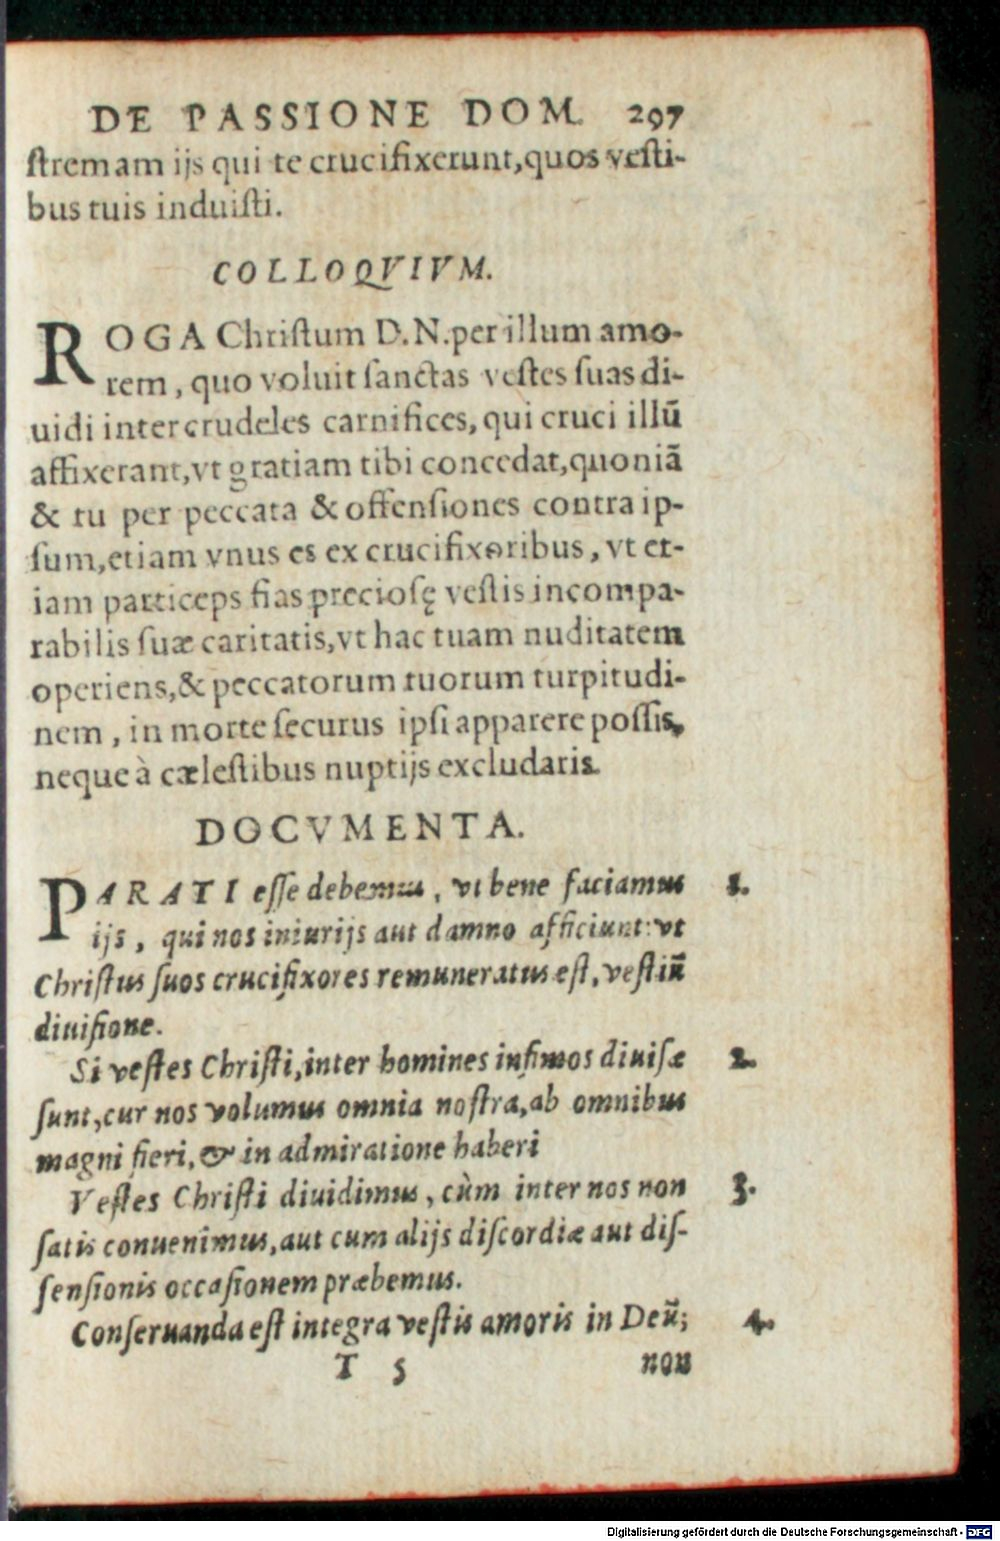 DE PASSIONE DOM. 297
ſtremam ijs qui te crucifixerunt, quos veſti-
bus tuis induiſti.
COLLOQVIVM.
ROGA Chriſtum D.N. per illum amo-
rem, quo voluit ſanctas veſtes ſuas di-
uidi inter crudeles carnifices, qui cruci illū
affixerant, vt gratiam tibi concedat, quoniã
& tu per peccata & offenſiones contra ip-
ſum, etiam vnus es ex crucifixoribus, vt et-
iam particeps fias precioſę veſtis incompa-
rabilis ſuæ caritatis, vt hac tuam nuditatem
operiens, & peccatorum tuorum turpitudi-
nem, in morte ſecurus ipſi apparere poſſis,
neque à cæleſtibus nuptijs excludaris.
DOCVMENTA.
PARATI eſſe debemus, vt bene faciamus 1.
ijs, qui nos iniurijs aut damno afficiunt: vt
Chriſtus ſuos crucifixores remuneratus eſt, veſtiũ
diuiſione.
Si veſtes Chriſti, inter homines infimos diuiſæ 2.
ſunt, cur nos volumus omnia noſtra, ab omnibus
magni fieri, & in admiratione haberi
Veſtes Chriſti diuidimus, cùm inter nos non 3.
ſatis conuenimus, aut cum alijs diſcordiæ aut diſ-
ſenſionis occaſionem præbemus.
Conſeruanda eſt integra veſtis amoris in Deũ; 4.
T 5 non
Digitalisierung gefördert durch die Deutsche Forschungsgemeinschaft - DFG